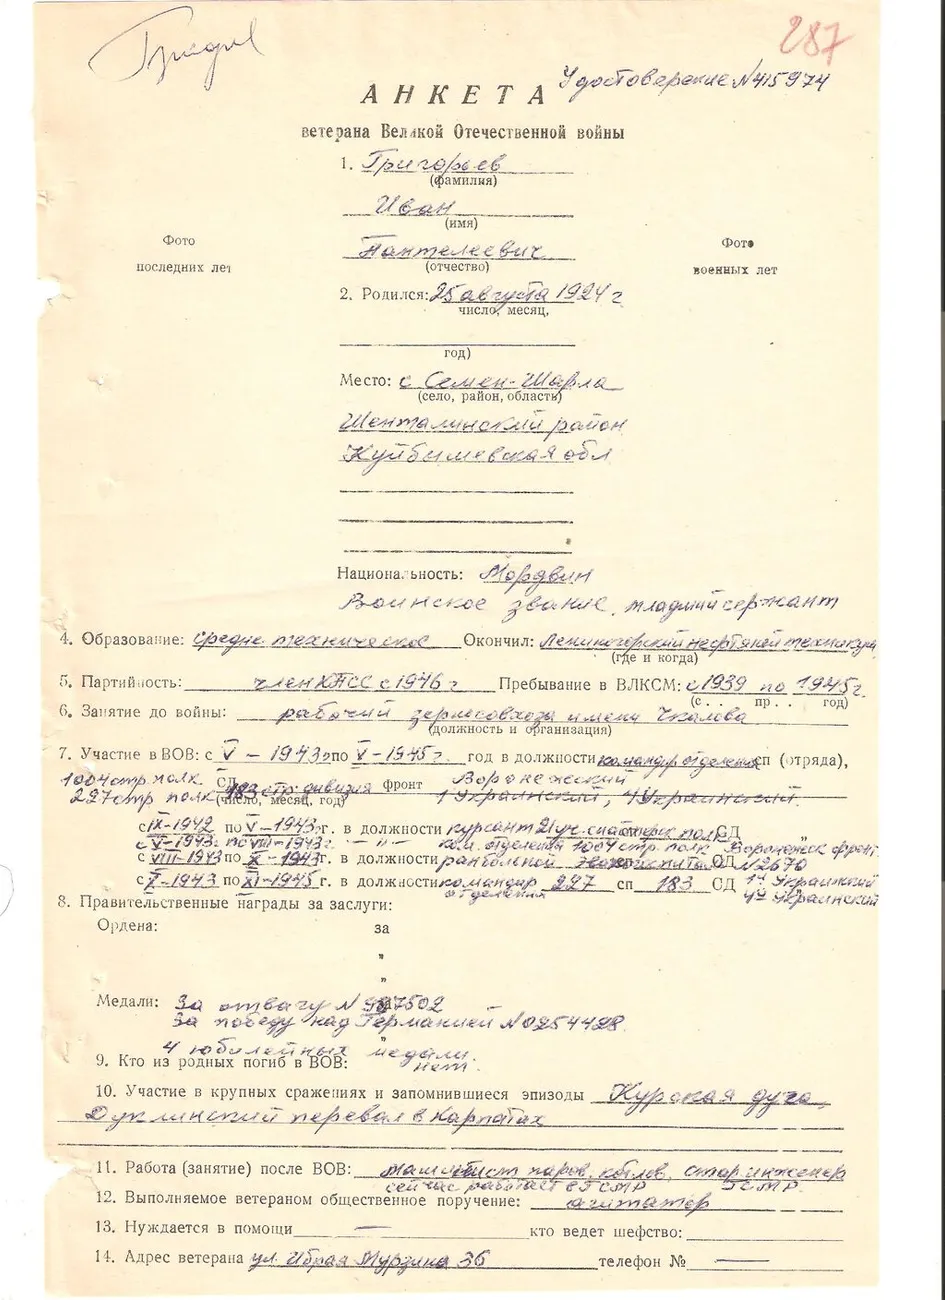 287
Удостоверение №415974
АНКЕТА
ветерана Великой Отечественной войны
1. Григорьев
(фамилия)
Иван
(имя)
Пантелеевич
(отчество)
Фото
последних лет
Фото
военных лет
2. Родился: 25 августа 1924 г
число, месяц,
год)
Место: с Семен-Шарла
(село, район, область)
Шенталинский район
Куйбышевская обл
Национальность: Мордвин
Воинское звание, младший сержант
4. Образование: средне техническое Окончил: Лениногорский нефтяной техникум
(где и когда)
5. Партийность: член КПСС с 1946 г Пребывание в ВЛКСМ: с 1939 по 1945 г.
(с . . пр . . год)
6. Занятие до войны: рабочий зерносовхоза имени Чкалова
(должность и организация)
7. Участие в ВОВ: с V - 1943 г по V - 1945 г. год в должности командир отделения сп (отряда),
1004 стр. полк СД фронт Воронежский
227 стр полк 183 стр. дивизия 1 Украинский, 4 Украинский.
(число, месяц, год)
с IX-1942 по V-1943 г. в должности курсант 21 уч. полк СД „
с V-1943 г. по VIII-1943 г. — " — ком. отделения 1004 стр. полк Воронежск фронт
с VIII-1943 по X-1943 г. в должности ранбольной эвакогоспиталь СД №2670
с X-1943 по XI-1945 г. в должности командир 227 сп 183 СД 1й Украинский
отделения 4й Украинский
8. Правительственные награды за заслуги:
Ордена: за
„
„
Медали: За отвагу № 7502
За победу над Германией № 0254428.
„
4 юбилейных медали.
9. Кто из родных погиб в ВОВ: нет.
10. Участие в крупных сражениях и запомнившиеся эпизоды Курская дуга,
Дуклинский перевал в Карпатах
11. Работа (занятие) после ВОВ: машинист паров. котлов, стар. инженер
сейчас работает
12. Выполняемое ветераном общественное поручение: агитатор
13. Нуждается в помощи — кто ведет шефство:
14. Адрес ветерана ул. Ибрая Мурзина 36 телефон № —